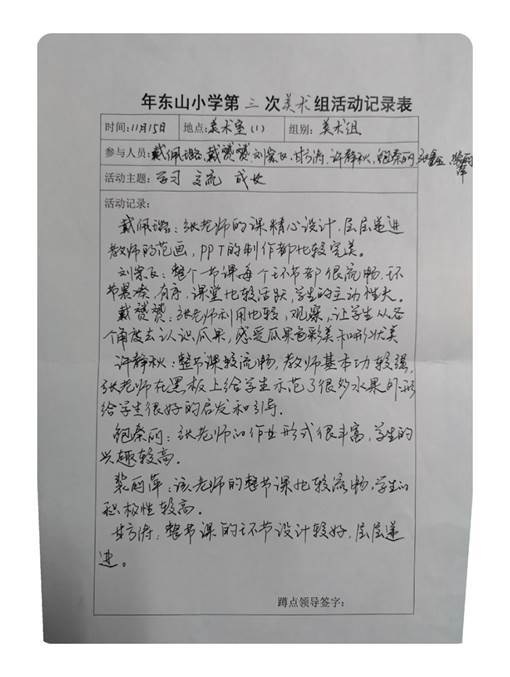 年东山小学第三次美术组活动记录表
时间:11月15日 地点:美术室(1) 组别:美术组
参与人员:戴佩璐,戴赟赟,刘宗,甘,许静秋,鲍秦丽,裴丽萍
活动主题:学习 交流 成长
活动记录:
戴佩璐:张老师的课精心设计,层层递进
教师的范画,PPT的制作都比较完美。
刘宗:整个一节课每个环节都很流畅,环
节紧凑,有序,课堂比较活跃,学生的主动性大。
戴赟赟:张老师利用比较,观察,让学生从各
个角度去认识瓜果,感受瓜果色彩美和形状美
许静秋:整节课较流畅,教师基本功较强,
张老师在黑板上给学生示范了很多水果外形
给学生很好的启发和引导.
鲍秦丽:张老师的作业形式很丰富,学生的
兴趣较高.
裴丽萍:该老师的整节课比较流畅,学生的
积极性较高.
甘:整节课的环节设计较好,层层递
进。
蹲点领导签字: